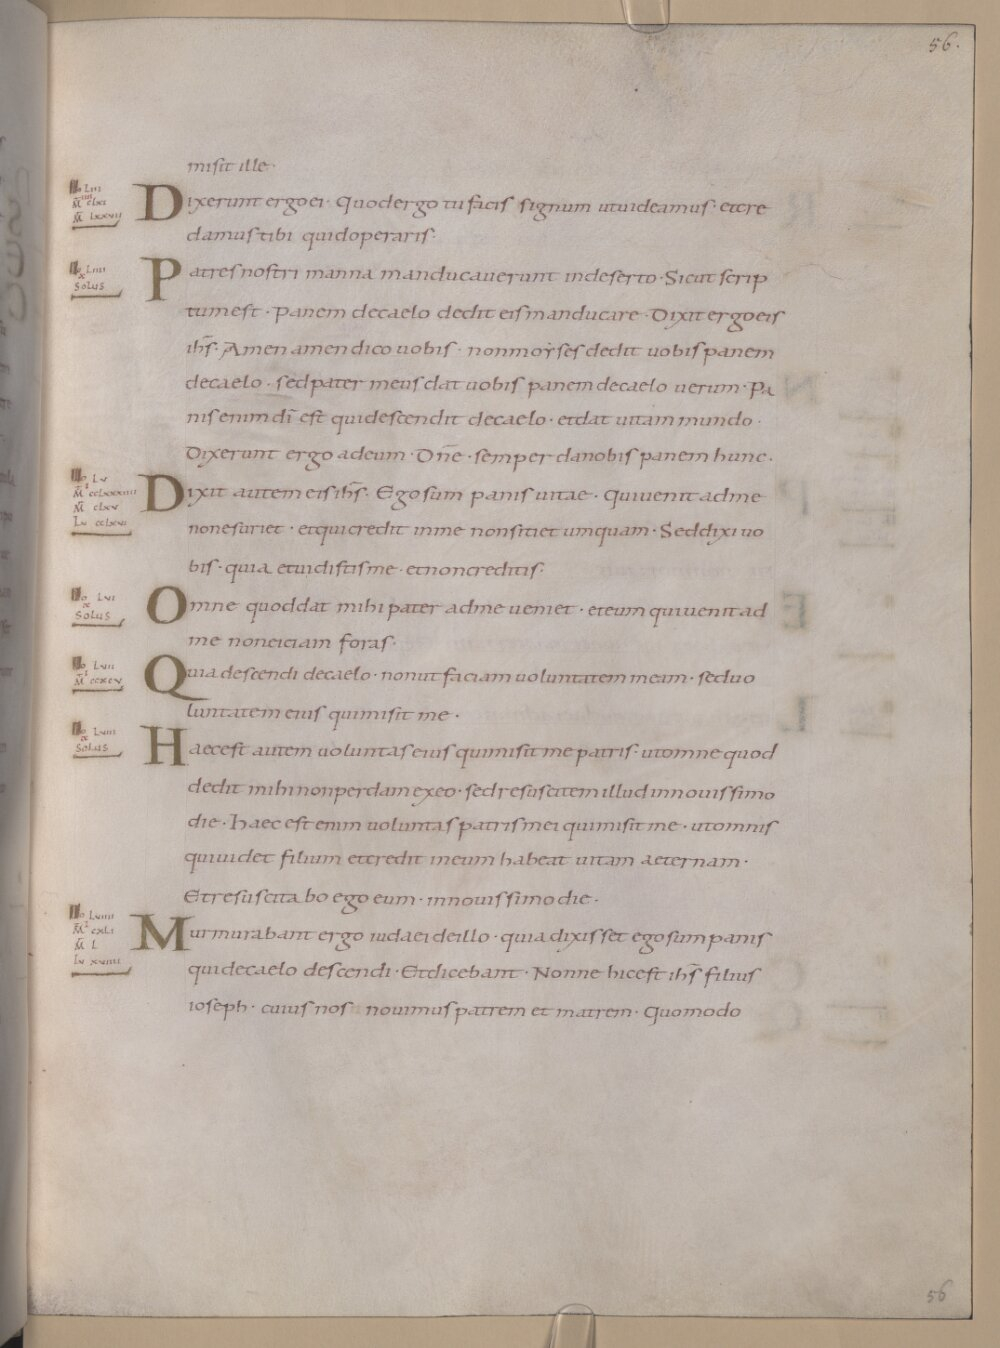 56.
misit ille·
Dixerunt ergo ei· Quod ergo tu facis signum ut uideamus· et cre
damus tibi quid operaris·
Patres nostri manna manducauerunt in deserto· Sicut scrip
tum est· Panem de caelo dedit eis manducare· Dixit ergo eis
ih̅s· Amen amen dico uobis· non moyses dedit uobis panem
de caelo· sed pater meus dat uobis panem de caelo uerum· Pa
nis enim di̅ est qui descendit de caelo· et dat uitam mundo·
Dixerunt ergo ad eum· Dn̅e· semper da nobis panem hunc·
Dixit autem eis ih̅s· Ego sum panis uitae· Qui uenit ad me
non esuriet· et qui credit in me non sitiet umquam· Sed dixi uo
bis· quia et uidistis me· et non creditis·
Omne quod dat mihi pater ad me ueniet· et eum qui uenit ad
me non eiciam foras·
Quia descendi de caelo· non ut faciam uoluntatem meam· sed uo
luntatem eius qui misit me·
Haec est autem uoluntas eius qui misit me patris· ut omne quod
dedit mihi non perdam ex eo· sed resuscitem illud in nouissimo
die· Haec est enim uoluntas patris mei qui misit me· ut omnis
qui uidet filium et credit in eum habeat uitam aeternam·
Et resuscitabo ego eum· in nouissimo die·
Murmurabant ergo iudaei de illo· quia dixisset ego sum panis
qui de caelo descendi· Et dicebant· Nonne hic est ih̅s filius
ioseph· cuius nos nouimus patrem et matrem· Quomodo
Solus
Solus
Solus
56